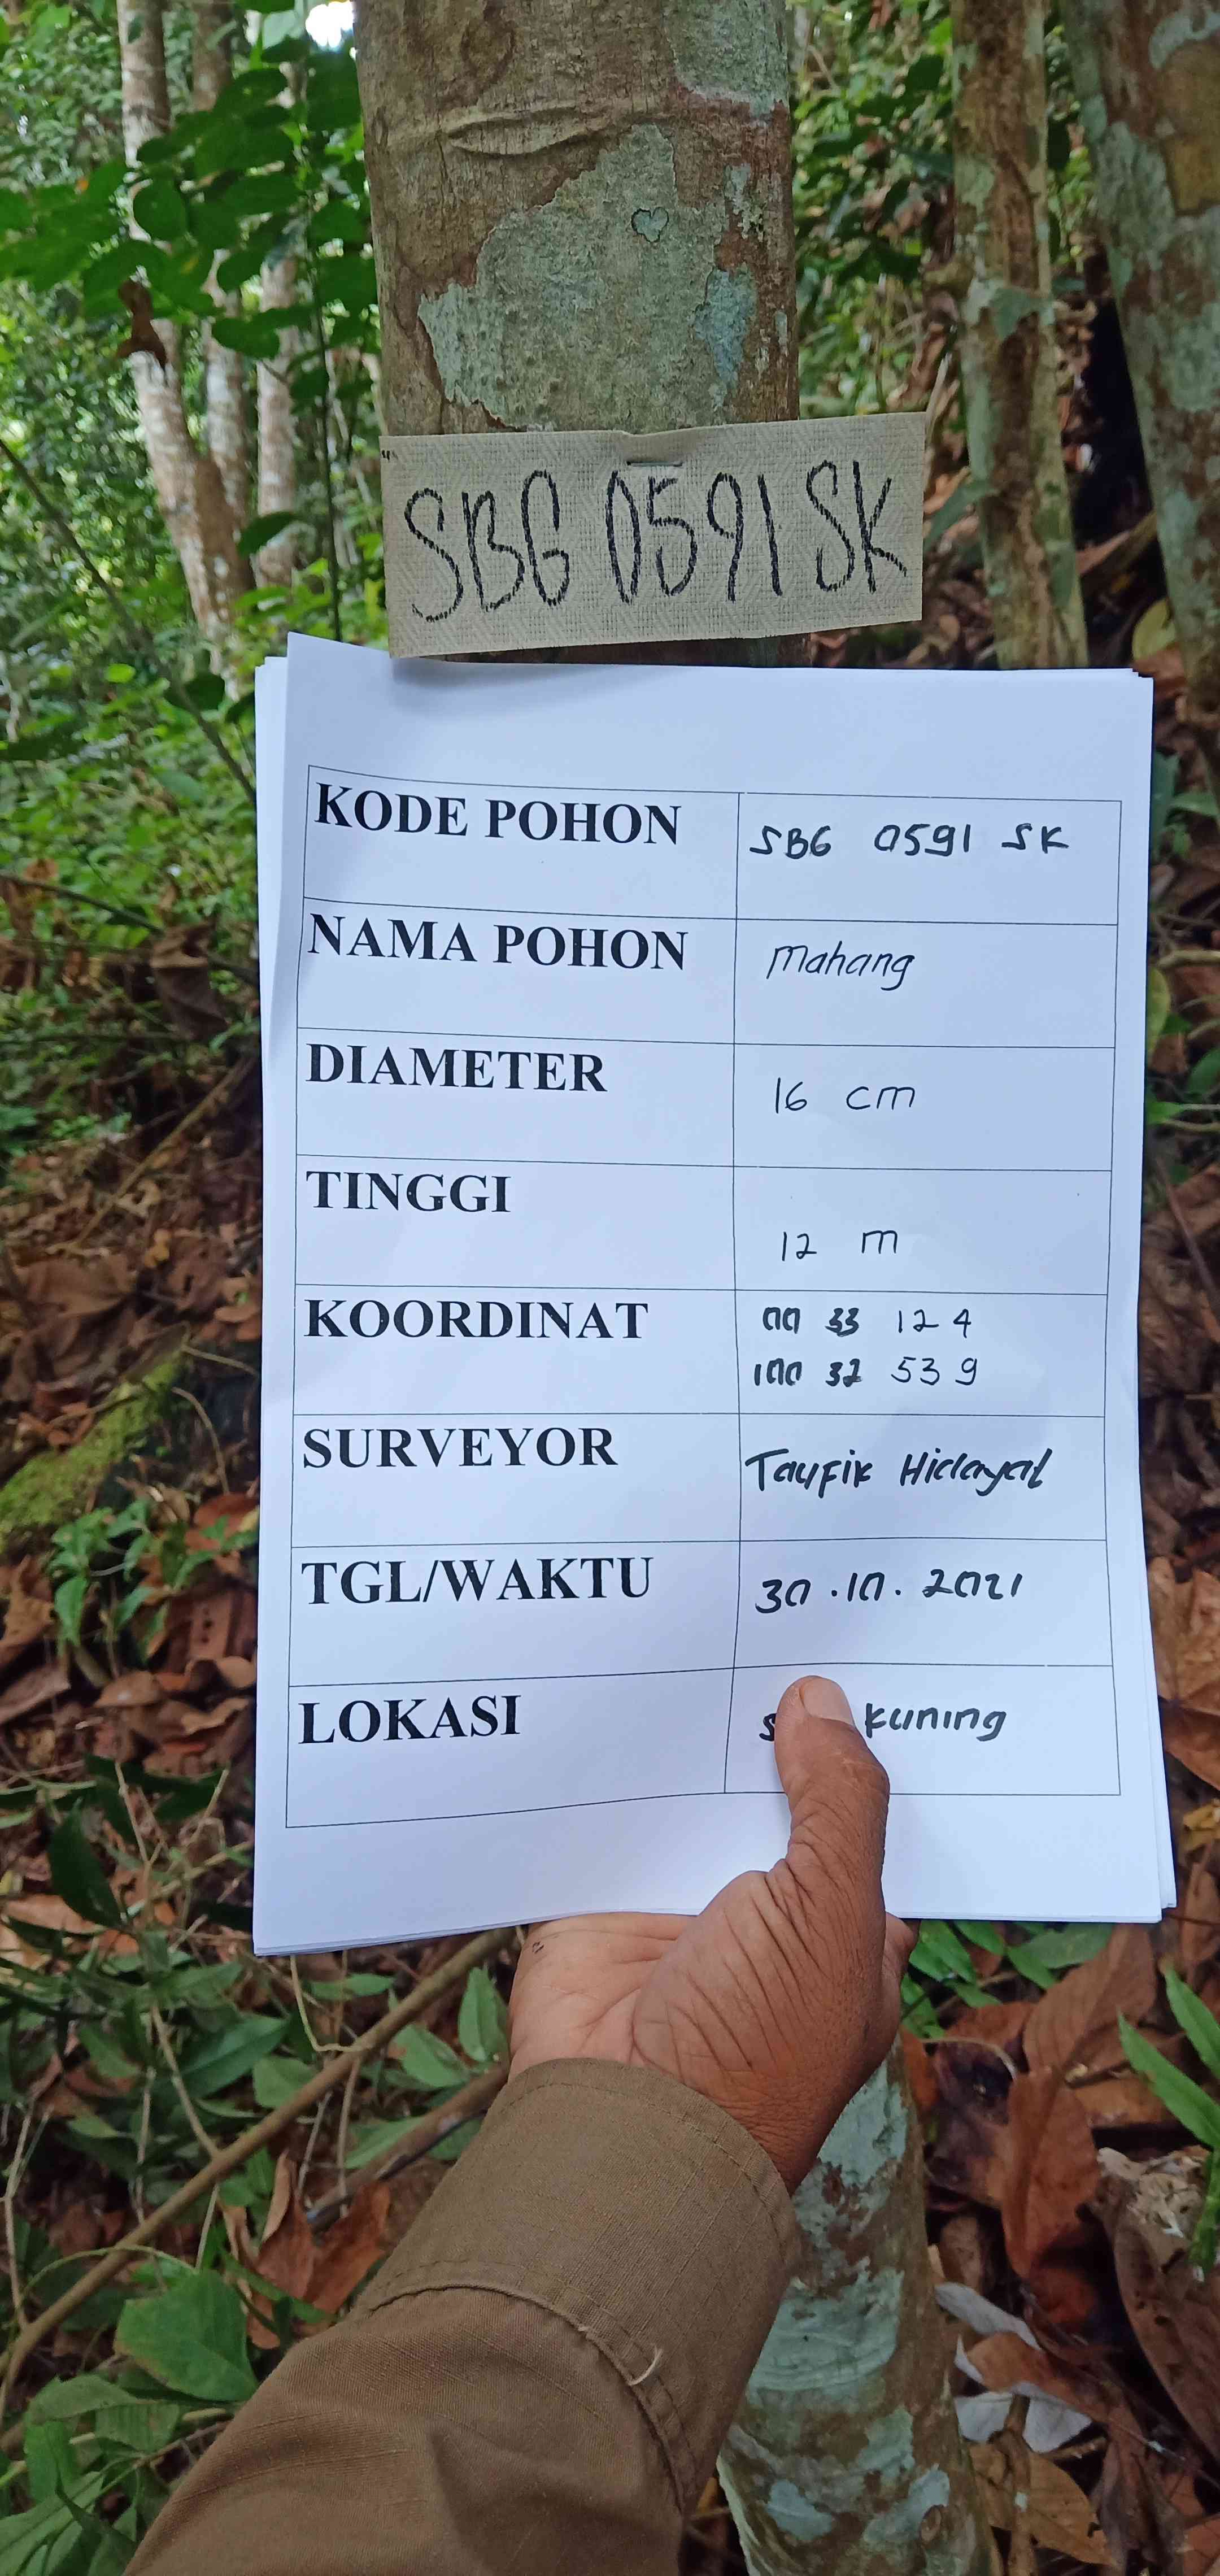 SBG 0591 SK
KODE POHON SBG 0591 SK
NAMA POHON Mahang
DIAMETER 16 cm
TINGGI 12 m
KOORDINAT 00 33 124
100 32 539
SURVEYOR Taufik Hidayat
TGL/WAKTU 30.10.2021
LOKASI kuning